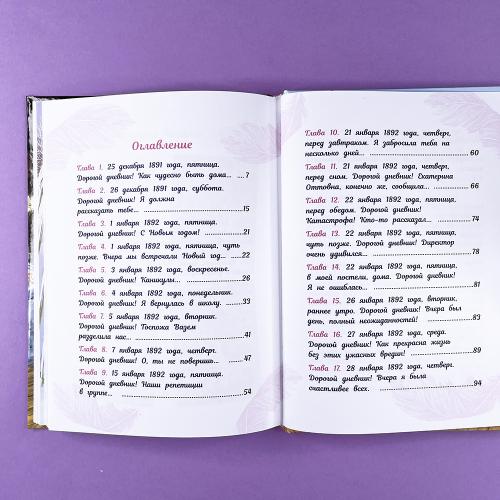 Оглавление
Глава 1. 25 декабря 1891 года, пятница.
Дорогой дневник! Как чудесно быть дома... ...7
Глава 2. 26 декабря 1891 года, суббота.
Дорогой дневник! Я должна
рассказать тебе... 15
Глава 3. 1 января 1892 года, пятница.
Дорогой дневник! С Новым годом! 21
Глава 4. 1 января 1892 года, пятница, чуть
позже. Вчера мы встречали Новый год... 22
Глава 5. 3 января 1892 года, воскресенье.
Дорогой дневник! Каникулы... 26
Глава 6. 4 января 1892 года, понедельник.
Дорогой дневник! Я вернулась в школу. 33
Глава 7. 5 января 1892 года, вторник.
Дорогой дневник! Госпожа Вазем
разделила нас... 41
Глава 8. 7 января 1892 года, четверг.
Дорогой дневник! О, ты не поверишь... 47
Глава 9. 15 января 1892 года, пятница.
Дорогой дневник! Наши репетиции
в группе... 54
Глава 10. 21 января 1892 года, четверг,
перед завтраком. Я забросила тебя на
несколько дней... 60
Глава 11. 21 января 1892 года, четверг,
перед сном. Дорогой дневник! Екатерина
Оттовна, конечно же, сообщила... 66
Глава 12. 22 января 1892 года, пятница,
перед обедом. Дорогой дневник!
Катастрофа! Кто-то рассказал... 74
Глава 13. 22 января 1892 года, пятница,
чуть позже. Дорогой дневник! Директор
очень удивился... 78
Глава 14. 22 января 1892 года, пятница,
в моей постели, дома. Дорогой дневник!
Я не ошиблась... 81
Глава 15. 26 января 1892 года, вторник,
раннее утро. Дорогой дневник! Вчера был
день, полный неожиданностей! 83
Глава 16. 27 января 1892 года, среда.
Дорогой дневник! Как прекрасна жизнь
без этих ужасных вредин! 89
Глава 17. 28 января 1892 года, четверг.
Дорогой дневник! Вчера я была
счастливее всех. 94